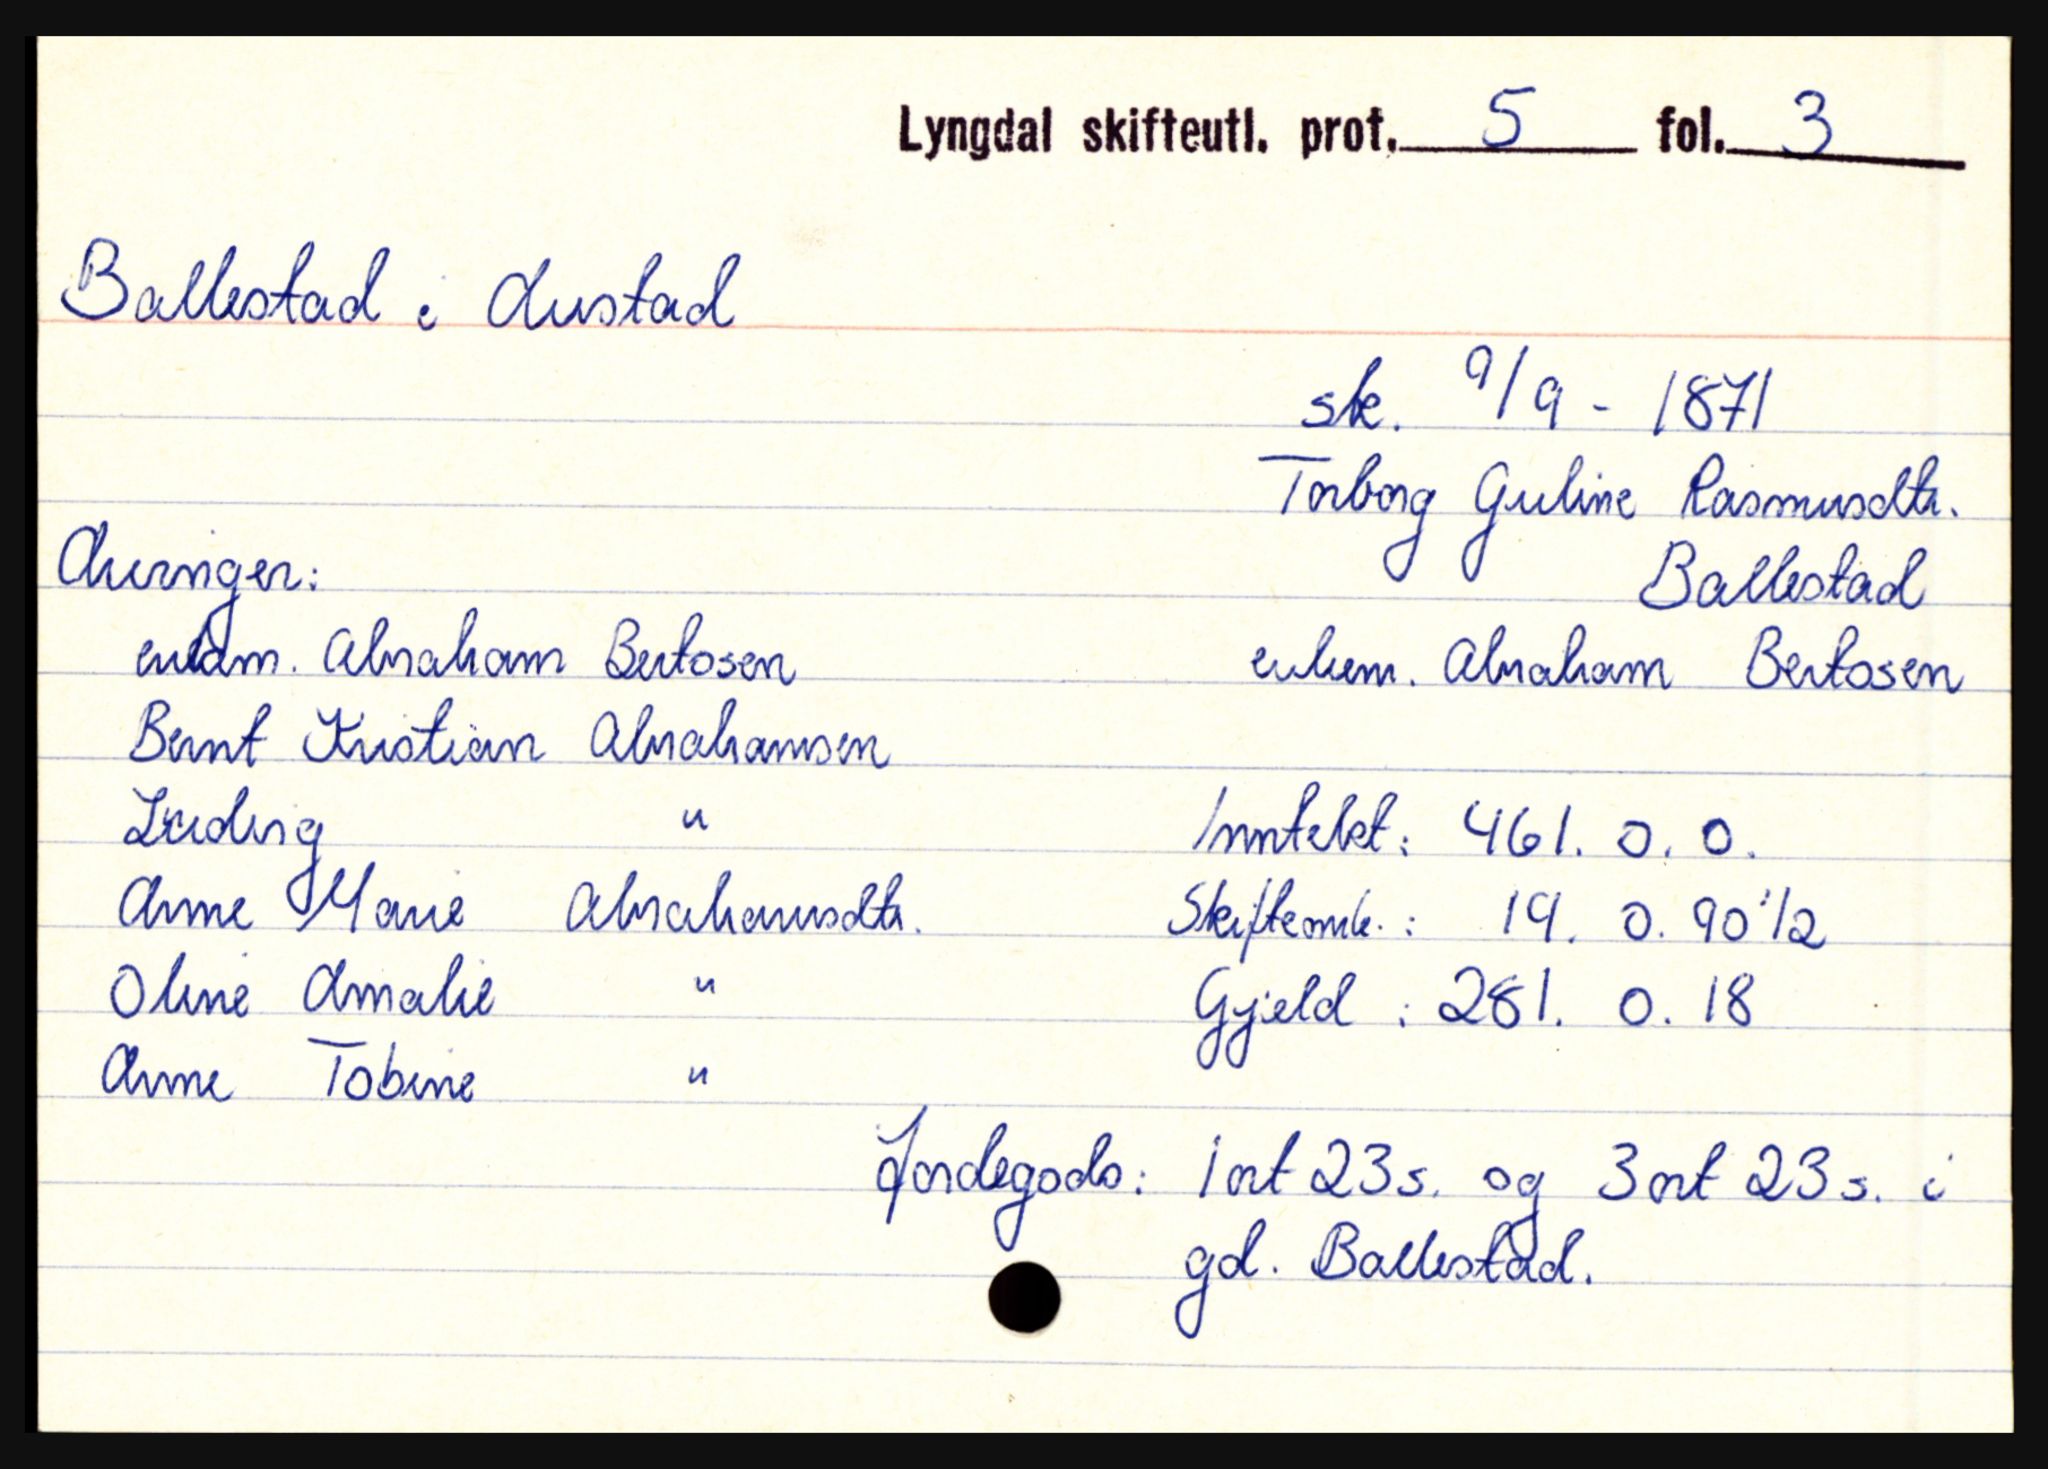 Lyngdal skifteutl. prot. 5 fol. 3
Ballestad i Austad
sk. 9/9 - 1871
Torborg Guline Rasmusdtr.
Ballestad
Arvinger:
enkem. Abraham Bertosen
enkem. Abraham Bertosen
Bernt Kristian Abrahamsen
Ludvig "
Inntekt: 461. 0. 0.
Anne Marie Abrahamsdtr.
Skifteomk.: 19. 0. 90 1/2
Oline Amalie "
Gjeld: 281. 0. 18
Anne Tobine "
Jordegods: 1 ort 23 s. og 3 ort 23 s. i
gd. Ballestad.